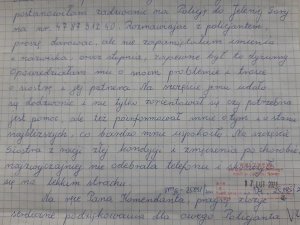 postanowiłam zadzwonić na Policję do Jeleniej Góry
na nr. 47 87 312 40. Rozmawiając z policjantem,
proszę darować, ale nie zapamiętałam imienia
i nazwiska, oraz stopnia, zapewne był to dyżurny
Opowiedziałam mu o moim problemie i trosce
o siostrę i jej
Na miejsce jemu udało
się dodzwonić i nie tylko zorientował się czy potrzebna
jest pomoc, ale też poinformował mnie o tym i o stanie
najbliższych, co bardzo mnie uspokoiło. Na szczęście
siostra z racji złej kondycji i zmęczenia po chorobie
najzwyczajniej nie odebrała telefonu i skończyło
się na lekkim strachu.
Na ręce Pana Komendanta pragnę złożyć
serdeczne podziękowania dla owego Policjanta